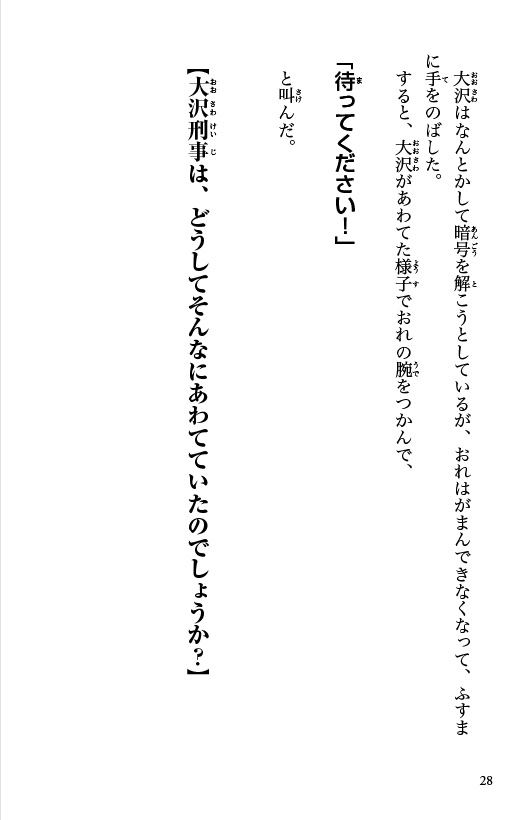 大沢はなんとかして暗号を解こうとしているが、おれはがまんできなくなって、ふすま
に手をのばした。
すると、大沢があわてた様子でおれの腕をつかんで、
「待ってください！」
と叫んだ。
【大沢刑事は、どうしてそんなにあわてていたのでしょうか？】
28